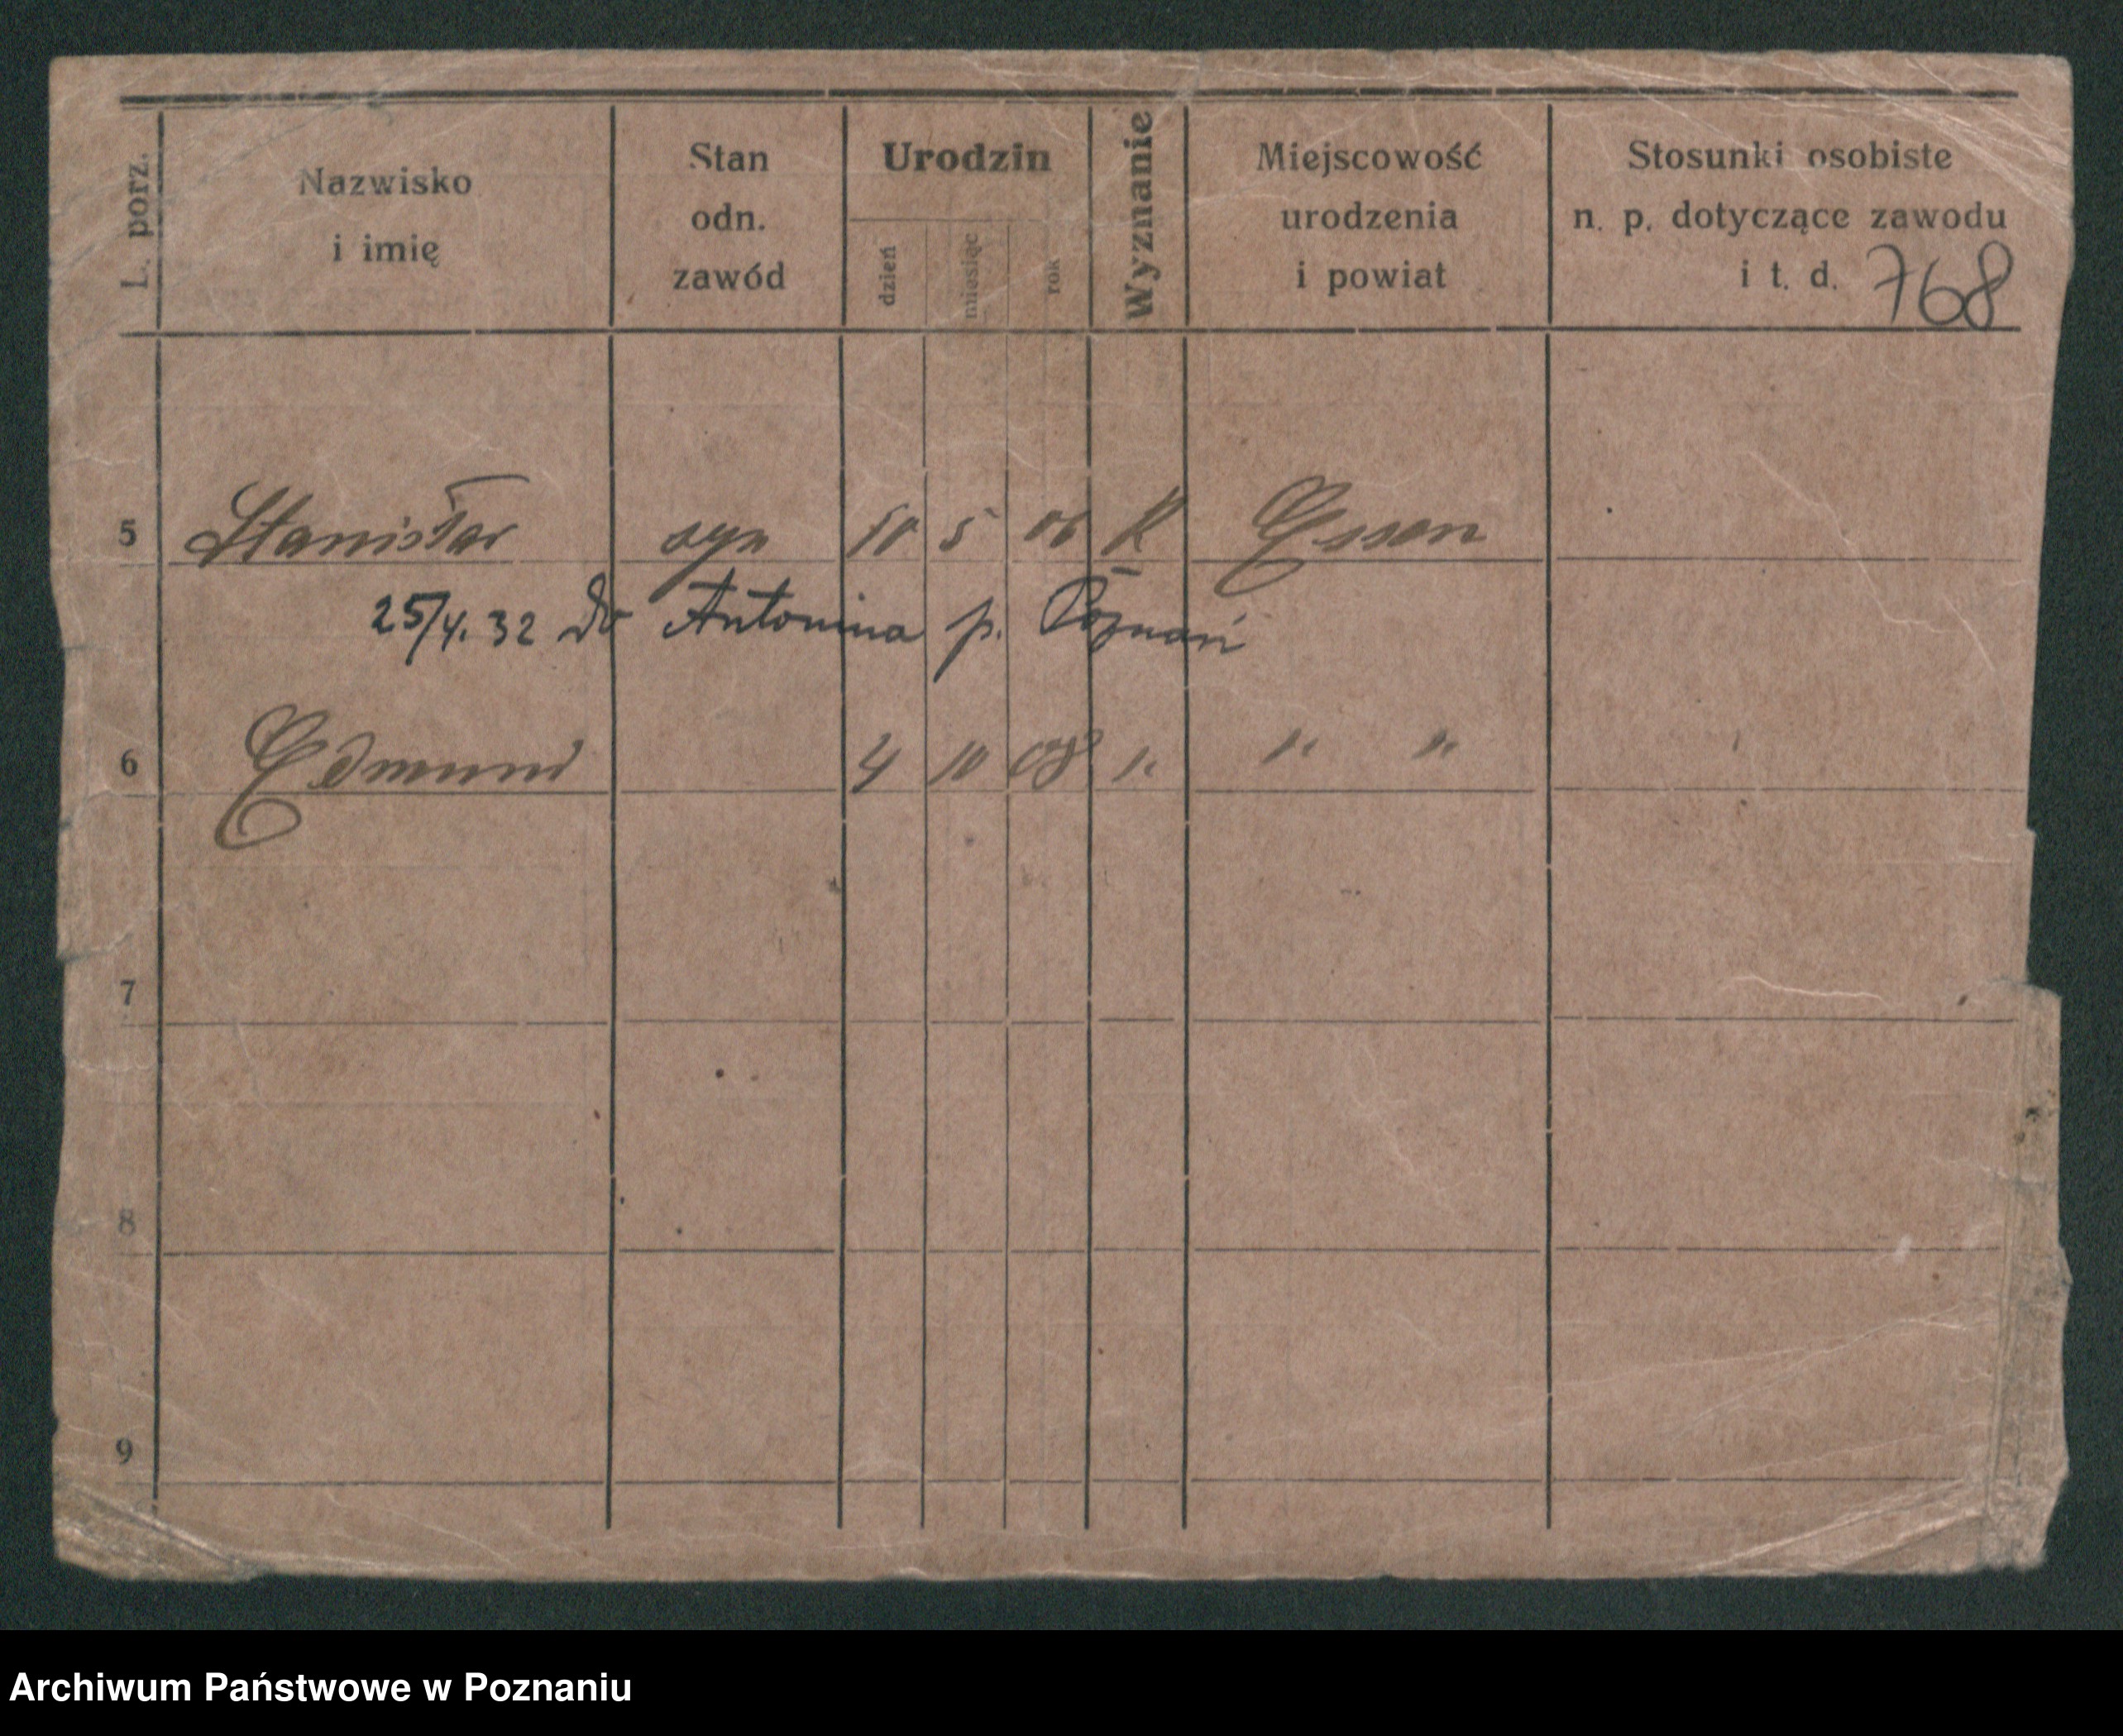 L. porz. Nazwisko i imię Stan odn. zawód Urodzin dzień miesiąc rok Wyznanie Miejscowość urodzenia i powiat Stosunki osobiste n. p. dotyczące zawodu i t. d. 768
5 Stanisław syn 10 5 06 K Essen
25/4. 32 do Antonina p. Poznań
6 Edmund 4 10 08 " " "
7
8
9
Archiwum Państwowe w Poznaniu